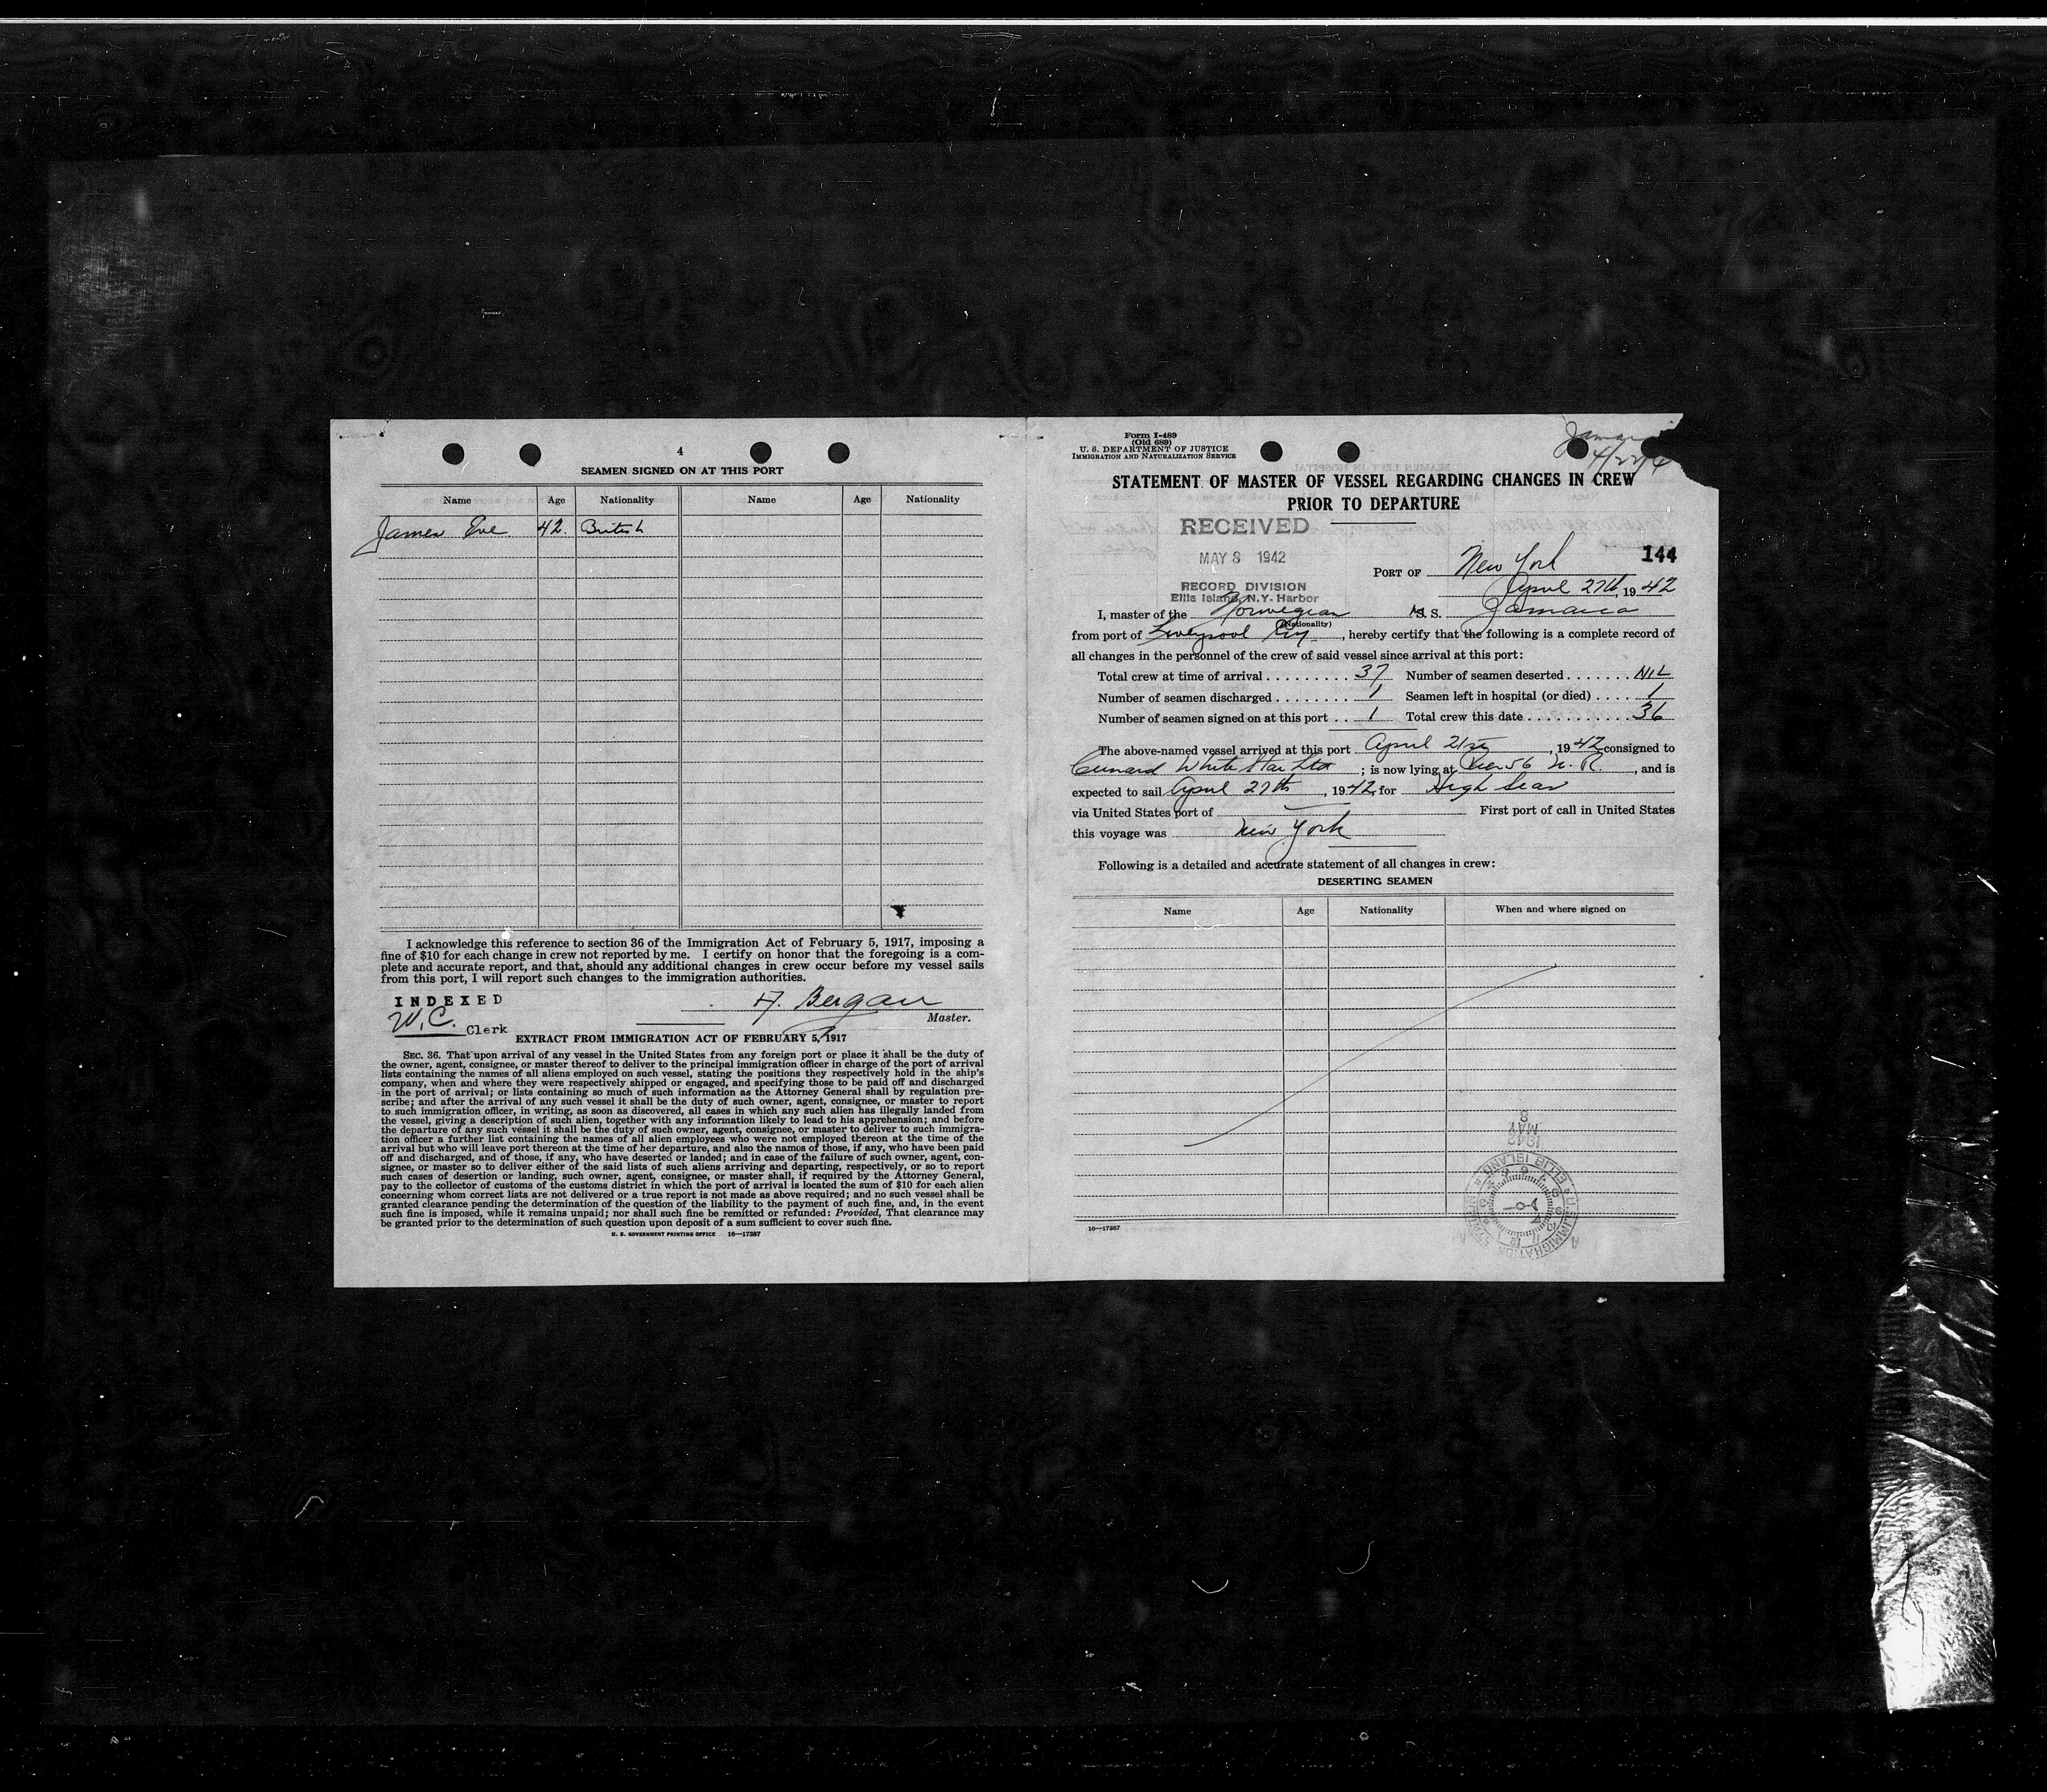 4
SEAMEN SIGNED ON AT THIS PORT
Name Age Nationality Name Age Nationality
James Eve 42. British
I acknowledge this reference to section 36 of the Immigration Act of February 5, 1917, imposing a
fine of $10 for each change in crew not reported by me. I certify on honor that the foregoing is a com-
plete and accurate report, and that, should any additional changes in crew occur before my vessel sails
from this port, I will report such changes to the immigration authorities.
INDEXED
W.C. Clerk
H. Bergan
Master.
EXTRACT FROM IMMIGRATION ACT OF FEBRUARY 5, 1917
SEC. 36. That upon arrival of any vessel in the United States from any foreign port or place it shall be the duty of
the owner, agent, consignee, or master thereof to deliver to the principal immigration officer in charge of the port of arrival
lists containing the names of all aliens employed on such vessel, stating the positions they respectively hold in the ship's
company, when and where they were respectively shipped or engaged, and specifying those to be paid off and discharged
in the port of arrival; or lists containing so much of such information as the Attorney General shall by regulation pre-
scribe; and after the arrival of any such vessel it shall be the duty of such owner, agent, consignee, or master to report
to such immigration officer, in writing, as soon as discovered, all cases in which any such alien has illegally landed from
the vessel, giving a description of such alien, together with any information likely to lead to his apprehension; and before
the departure of any such vessel it shall be the duty of such owner, agent, consignee, or master to deliver to such immigra-
tion officer a further list containing the names of all alien employees who were not employed thereon at the time of the
arrival but who will leave port thereon at the time of her departure, and also the names of those, if any, who have been paid
off and discharged, and of those, if any, who have deserted or landed; and in case of the failure of such owner, agent, con-
signee, or master so to deliver either of the said lists of such aliens arriving and departing, respectively, or so to report
such cases of desertion or landing, such owner, agent, consignee, or master shall, if required by the Attorney General,
pay to the collector of customs of the customs district in which the port of arrival is located the sum of $10 for each alien
concerning whom correct lists are not delivered or a true report is not made as above required; and no such vessel shall be
granted clearance pending the determination of the question of the liability to the payment of such fine, and, in the event
such fine is imposed, while it remains unpaid; nor shall such fine be remitted or refunded: Provided, That clearance may
be granted prior to the determination of such question upon deposit of a sum sufficient to cover such fine.
U. S. GOVERNMENT PRINTING OFFICE 16—17387
Form I-489
(Old 689)
U. S. DEPARTMENT OF JUSTICE
IMMIGRATION AND NATURALIZATION SERVICE
STATEMENT OF MASTER OF VESSEL REGARDING CHANGES IN CREW
PRIOR TO DEPARTURE
RECEIVED
MAY 8 1942
RECORD DIVISION
Ellis Island, N.Y. Harbor
144
PORT OF New York
April 27th, 1942
I, master of the Norwegian M.S. Jamaica
(Nationality)
from port of Liverpool Eng., hereby certify that the following is a complete record of
all changes in the personnel of the crew of said vessel since arrival at this port:
Total crew at time of arrival 37 Number of seamen deserted NIL
Number of seamen discharged 1 Seamen left in hospital (or died) 1
Number of seamen signed on at this port 1 Total crew this date 36
The above-named vessel arrived at this port April 21st, 1942 consigned to
Cunard White Star Ltd; is now lying at Pier 56 N. R., and is
expected to sail April 27th, 1942, for High Seas
via United States port of — First port of call in United States
this voyage was New York
Following is a detailed and accurate statement of all changes in crew:
DESERTING SEAMEN
Name Age Nationality When and where signed on
MAY 8 1942
16—17387